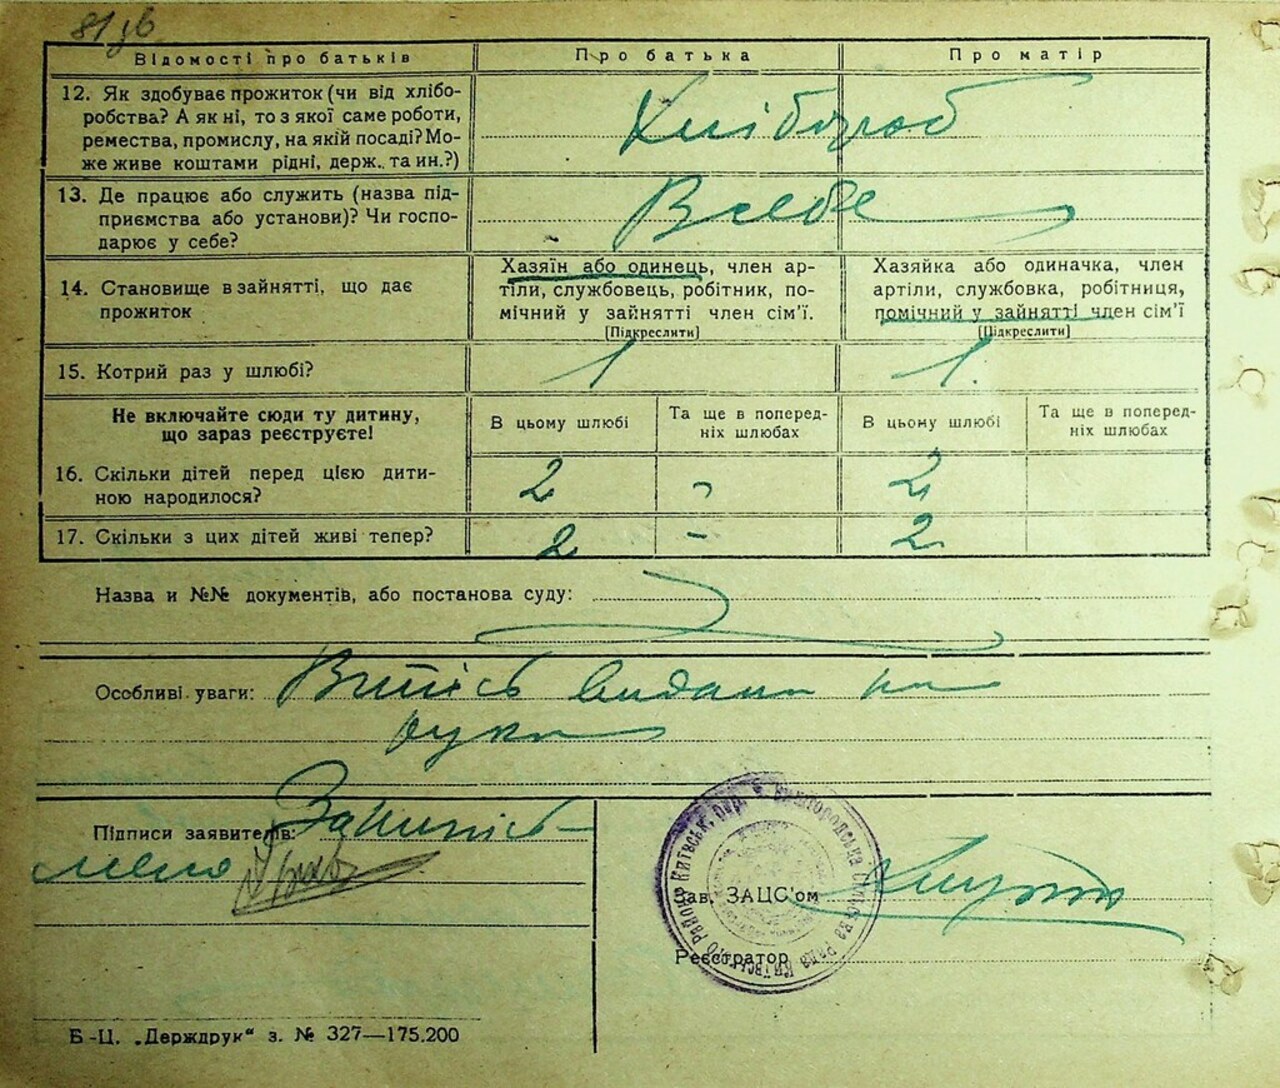 81 зв
Відомості про батьків
Про батька
Про матір
12. Як здобуває прожиток (чи від хлібо-
робства? А як ні, то з якої саме роботи,
ремества, промислу, на якій посаді? Мо-
же живе коштами рідні, держ. та ин.?)
Хлібороб
13. Де працює або служить (назва під-
приємства або установи)? Чи госпо-
дарює у себе?
В себе
14. Становище в зайнятті, що дає
прожиток
Хазяїн або одинець, член ар-
тіли, службовець, робітник, по-
мічний у зайнятті член сім'ї.
[Підкреслити]
Хазяйка або одиначка, член
артіли, службовка, робітниця,
помічний у зайнятті член сім'ї
[Підкреслити]
15. Котрий раз у шлюбі?
1
1.
Не включайте сюди ту дитину,
що зараз реєструєте!
В цьому шлюбі
Та ще в поперед-
ніх шлюбах
В цьому шлюбі
Та ще в поперед-
ніх шлюбах
16. Скільки дітей перед цією дити-
ною народилося?
2
-
2
17. Скільки з цих дітей живі тепер?
2
-
2
Назва и №№ документів, або постанова суду:
Особливі уваги: Витісь видана на
руки
Підписи заявителів:
Зав. ЗАЦС'ом
Реєстратор
Вишгородська Сільська Рада Київського району Київськ.
Б-Ц. „Держдрук“ з. № 327—175.200